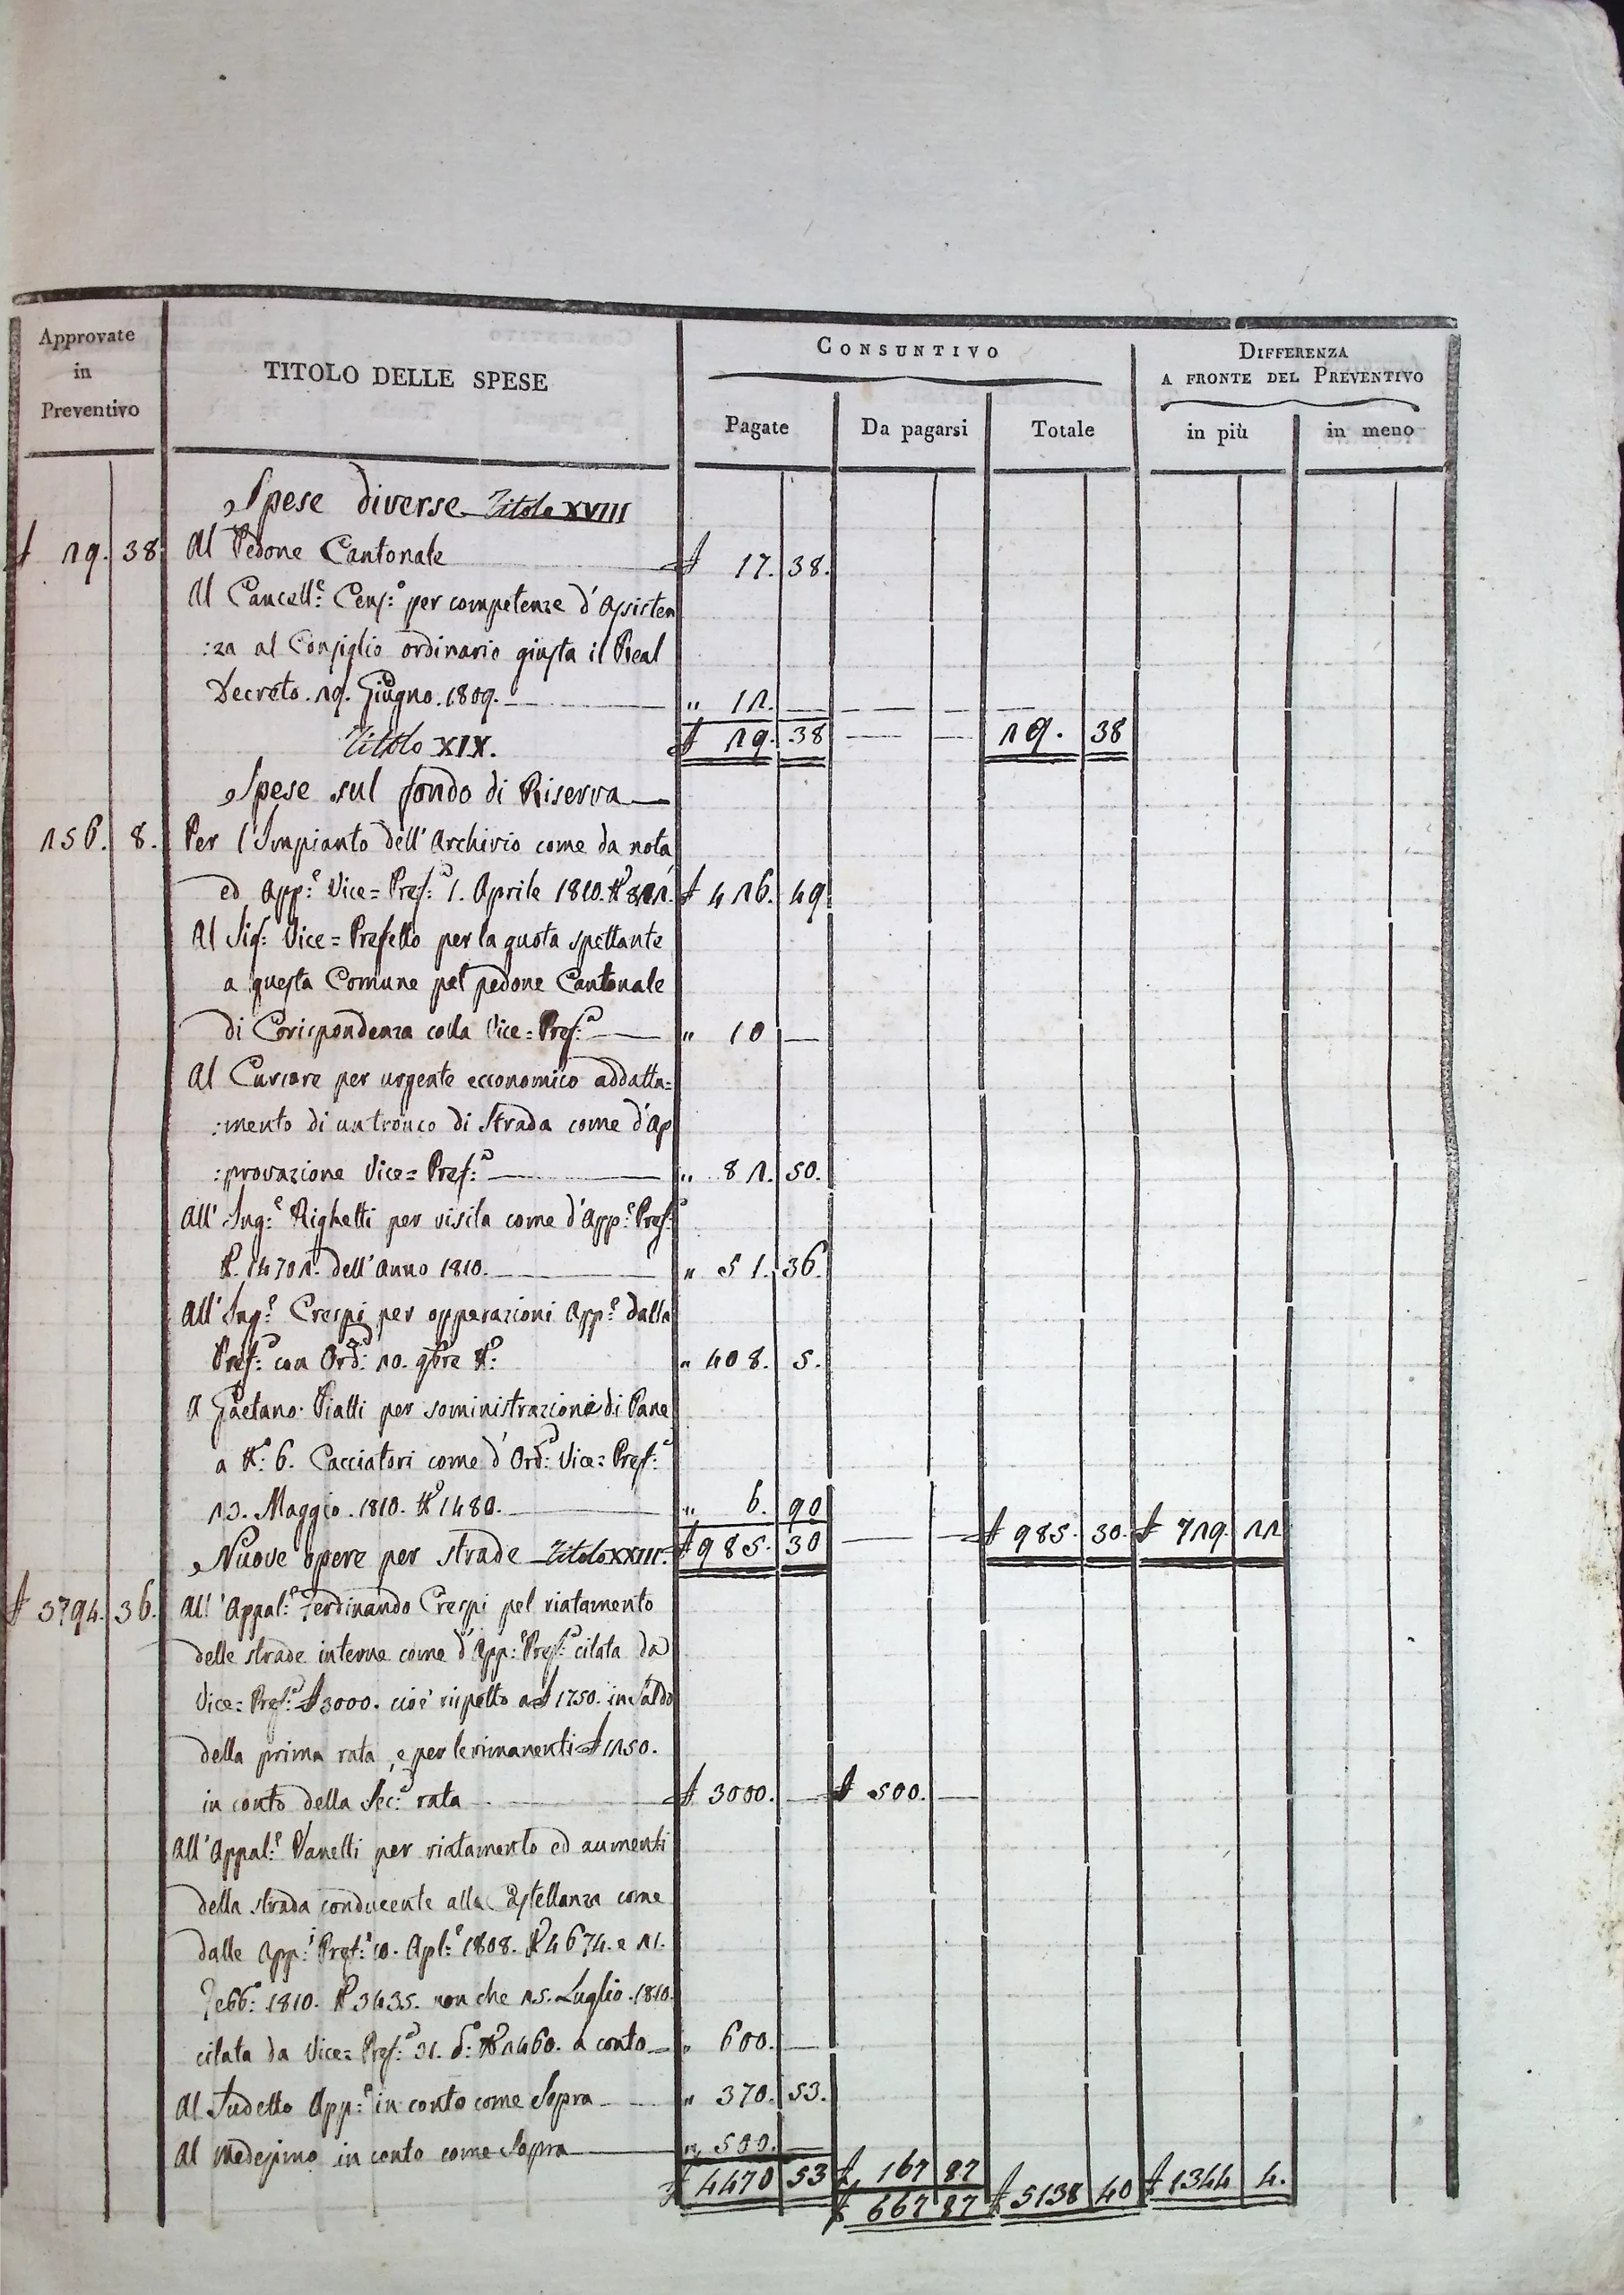 Approvate
in
Preventivo
TITOLO DELLE SPESE
CONSUNTIVO
DIFFERENZA
A FRONTE DEL PREVENTIVO
Pagate
Da pagarsi
Totale
in più
in meno
Spese diverse Titolo XVIII
£ 29. 38 Al Pedone Cantonale £ 17. 38.
Al Cancell:e Cens:o per competenze d'Assisten
:za al Consiglio ordinario giusta il Real
Decreto. 29. Giugno. 1809. " 12. —
Titolo XIX. £ 29. 38 — — 29. 38
Spese sul fondo di Riserva
256. 8. Per l'Impianto dell'Archivio come da nota
ed App:e Vice=Pref:a 1. Aprile 1810. N.o 822. £ 426. 49.
Al Sig: Vice=Prefetto per la quota spettante
a questa Comune pel pedone Cantonale
di Corispondenza colla Vice=Pref:a " 10 —
Al Cursore per urgente economico addatta=
:mento di un tronco di Strada come d'Ap
:provazione Vice=Pref:a " 82. 50.
All'Ing:e Righetti per visita come d'App:e Pref:a
N. 14702. dell'Anno 1810. " 51. 36.
All'Ing:e Crespi per opperazioni App:e dalla
Pref:a con Ord: 20. 9bre N:o " 408. 5.
A Gaetano Pialti per soministrazione di Pane
a N:o 6. Cacciatori come d'Ord: Vice=Pref:a
23. Maggio. 1810. N.o 1480. " 6. 90
Nuove opere per strade Titolo XXIII. £ 985. 30 — — £ 985. 30. £ 729. 22
£ 3794. 36. All'Appal:e Ferdinando Crespi pel riatamento
delle strade interne come d'App:e Pref:a citata da
Vice=Pref:a £ 3000. cioè rispetto a £ 1750. in Saldo
della prima rata, e per le rimanenti £ 1250.
in conto della Sec:a rata £ 3000. — £ 500. —
All'Appal:e Vanetti per riatamento ed aumenti
della strada conducente alla Castellanza come
dalle App:i Pref:e 10. Apl:e 1808. N.o 4674. e 21.
Febb:o 1810. N.o 3435. non che 25. Luglio. 1810.
citata da Vice=Pref:a 31. d:o N.o 2460. a conto " 600. —
Al Sudetto App:e in conto come Sopra " 370. 53.
Al Medesimo in conto come Sopra " 500. —
£ 167 87
£ 4470 53 £ 667 87 £ 5138 40 £ 1344 4.